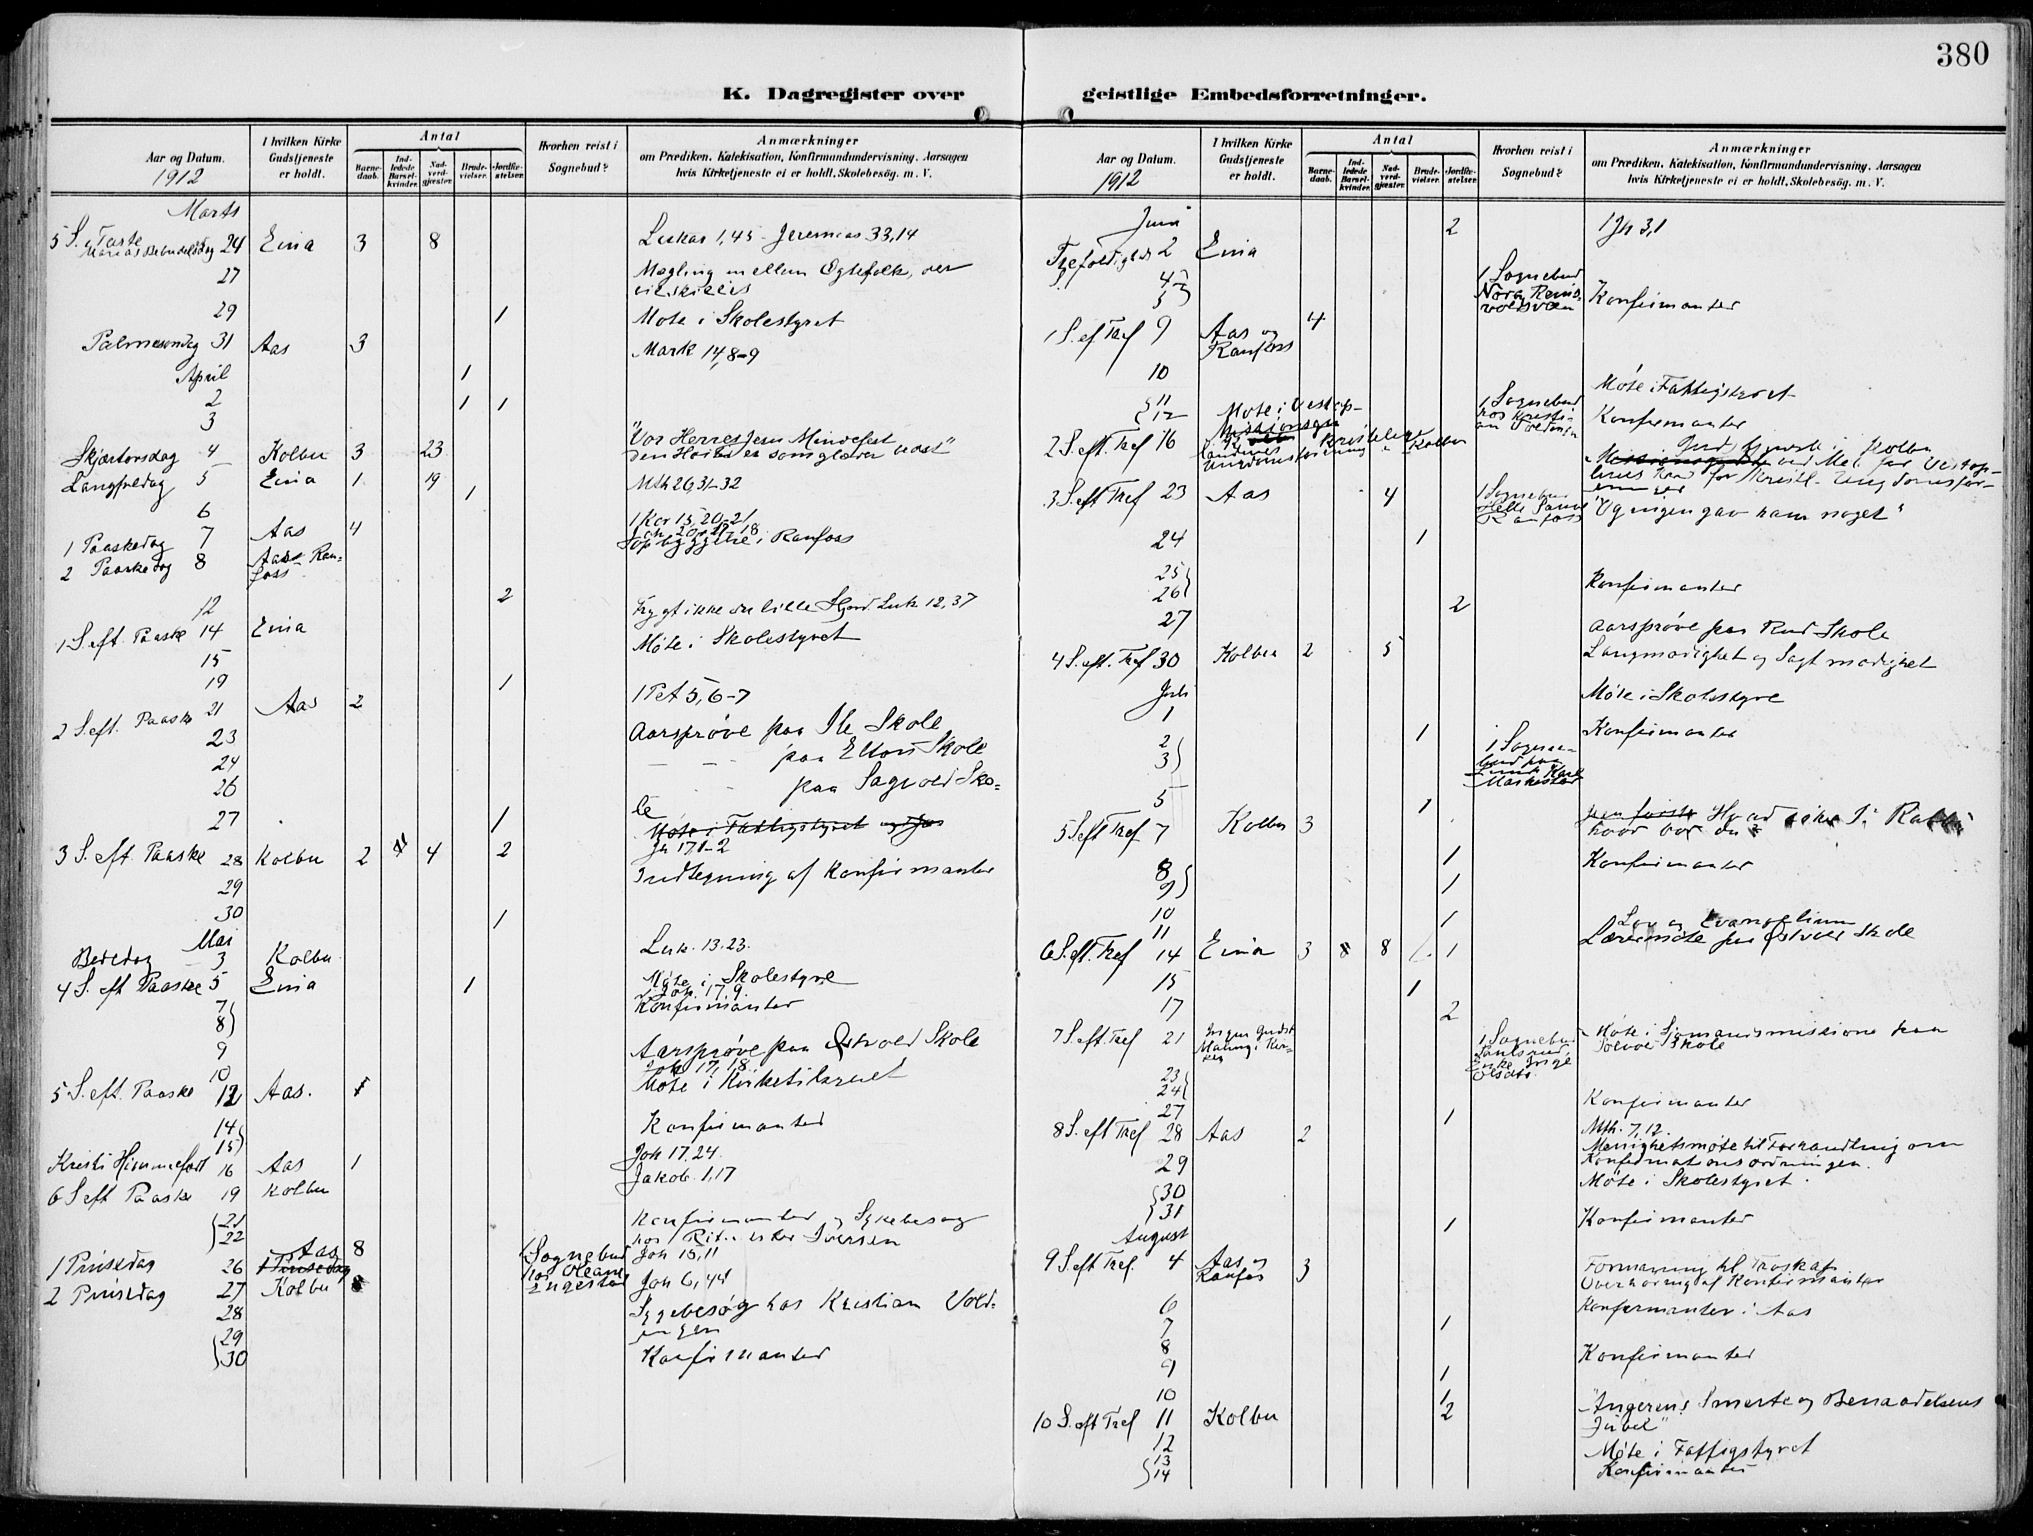 380
K. Dagregister over geistlige Embedsforretninger.
Aar og Datum. I hvilken Kirke Gudstjeneste er holdt. Antal Hvorhen reist i Sognebud? Anmærkninger
Barnedaab. Indledede Barselkvinder. Nadverdgjester. Brudevielser. Jordfæstelser. om Prædiken, Katekisation, Konfirmandundervisning, Aarsagen hvis Kirketjeneste ei er holdt, Skolebesøg. m. V.
1912
Marts
5 S. i Faste
Marias Bebudelsdag 24 Eina 3 8 Lukas 1,45 - Jeremias 33,14
27 Mægling mellem Egtefolk, der
vil skilles
29 1 Møte i Skolestyret
Palmesøndag 31 Aas 3 Mark 14,8-9
April 1
2 1 1
3
Skjærtorsdag 4 Kolbu 3 23 "Vor Herres Jesu Mindefest
Langfredag 5 Eina 1 19 Mth 26,31-32
6 1
1 Paaskedag 7 Aas 4 1 Kor 15,20-21
2 Paaskedag 8 Aas - Raufoss Opbyggelse i Raufoss
12 2
1 S. eft. Paaske 14 Eina Frygt ikke du lille Hjord. Luk 12,37
15 Møte i Skolestyret
19 1
2 S. eft. Paaske 21 Aas 2 1 Pet 5,6-7
23 Aarsprøve paa Ile Skole
24 - - paa Elton Skole
26 - paa Sagvold Sko=
le
27 1 Møte i Fattigstyret
3 S. eft Paaske 28 Kolbu 2 4 2 Jh 17,1-2
29 Indtegning af Konfirmanter
30 1
Mai
Bededag 3 Kolbu Luk. 13.23.
4 S. eft Paaske 5 Eina 1 Møte i Skolestyre
Joh. 17,9.
7 Konfirmanter
8
9 Aarsprøve paa Østvold Skole
10 Joh 17,18
5 S. eft. Paaske 12 Aas. 1 Møte i Kirketilsynet
14 Konfirmanter
15
Kristi Himmelfart 16 Aas 1 Joh 17.24.
6 S eft Paaske 19 Kolbu Jakob. 1,17
21 Konfirmanter og Sykebesøg
22 hos Iversen
1 Pinsedag 26 Aas 8 1 Sognebud Joh 15,11
2 Pinsedag 27 Kolbu Joh 6,44
28 Sygebesøg hos Kristian Vold=
engen
29 Konfirmanter
30
Aar og Datum. I hvilken Kirke Gudstjeneste er holdt. Antal Hvorhen reist i Sognebud? Anmærkninger
Barnedaab. Indledede Barselkvinder. Nadverdgjester. Brudevielser. Jordfæstelser. om Prædiken, Katekisation, Konfirmandundervisning, Aarsagen hvis Kirketjeneste ei er holdt, Skolebesøg. m. V.
1912
Juni
Trefoldighds 2 Eina 2 1 Jh 3,1
4 1 Sognebud
5 Konfirmanter
1 S. ef Tref 9 Aas og 4
Raufoss
10 Møte i Fattigstyret
11 1 Sognebud
12 Møte i Vestop- Konfirmanter
2 S. eft Tref 16 Kristelige Kolbu
Ungdomsforening
3 S. eft Tref 23 Aas 4 1 Sognebud "Og ingen gav ham noget"
Raufoss
24 1
25 Konfirmanter
26
27 2 Aarsprøve paa Rud Skole
4 S. eft. Tref 30 Kolbu 2 5 Langmodighet og Sagtmodighet
Juli
1 Møte i Skolestyre
2 1 Konfirmanter
3 1 Sogne=
bud
5 1
5 S eft Tref 7 Kolbu 3 Hvad
hvor bor du
8 1 Konfirmanter
9 1
10 1
11 Lov og Evangelium
6 S. eft. Tref 14 Eina 3 8 8 1 Lærermøte paa Østvold Skole
15 1
17 2
7 S eft Tref 21 Ingen Gudst 1 Sognebud Møte i Sjømandsmissionen paa
Maling i Kir= Skole
ken
23 Konfirmanter
24
27 1
8 S. eft Tref 28 Aas 2 Mth. 7,12.
29 Menighetsmøte til Forhandling om
Konfirmationsordningen.
30 Møte i Skolestyret.
31 Konfirmanter
August 1
9 S eft Tref 4 Aas og 3 Formaning til Troskap
Raufos Overhøring af Konfirmanter
6 Konfirmanter i Aas
7 1
8 Konfirmanter
9 1
10 1
10 S. eft Tref 11 Kolbu 2 "Angerens Smerte og Benaadelsens
Jubel"
12 Møte i Fattigstyret
13 Konfirmanter
14